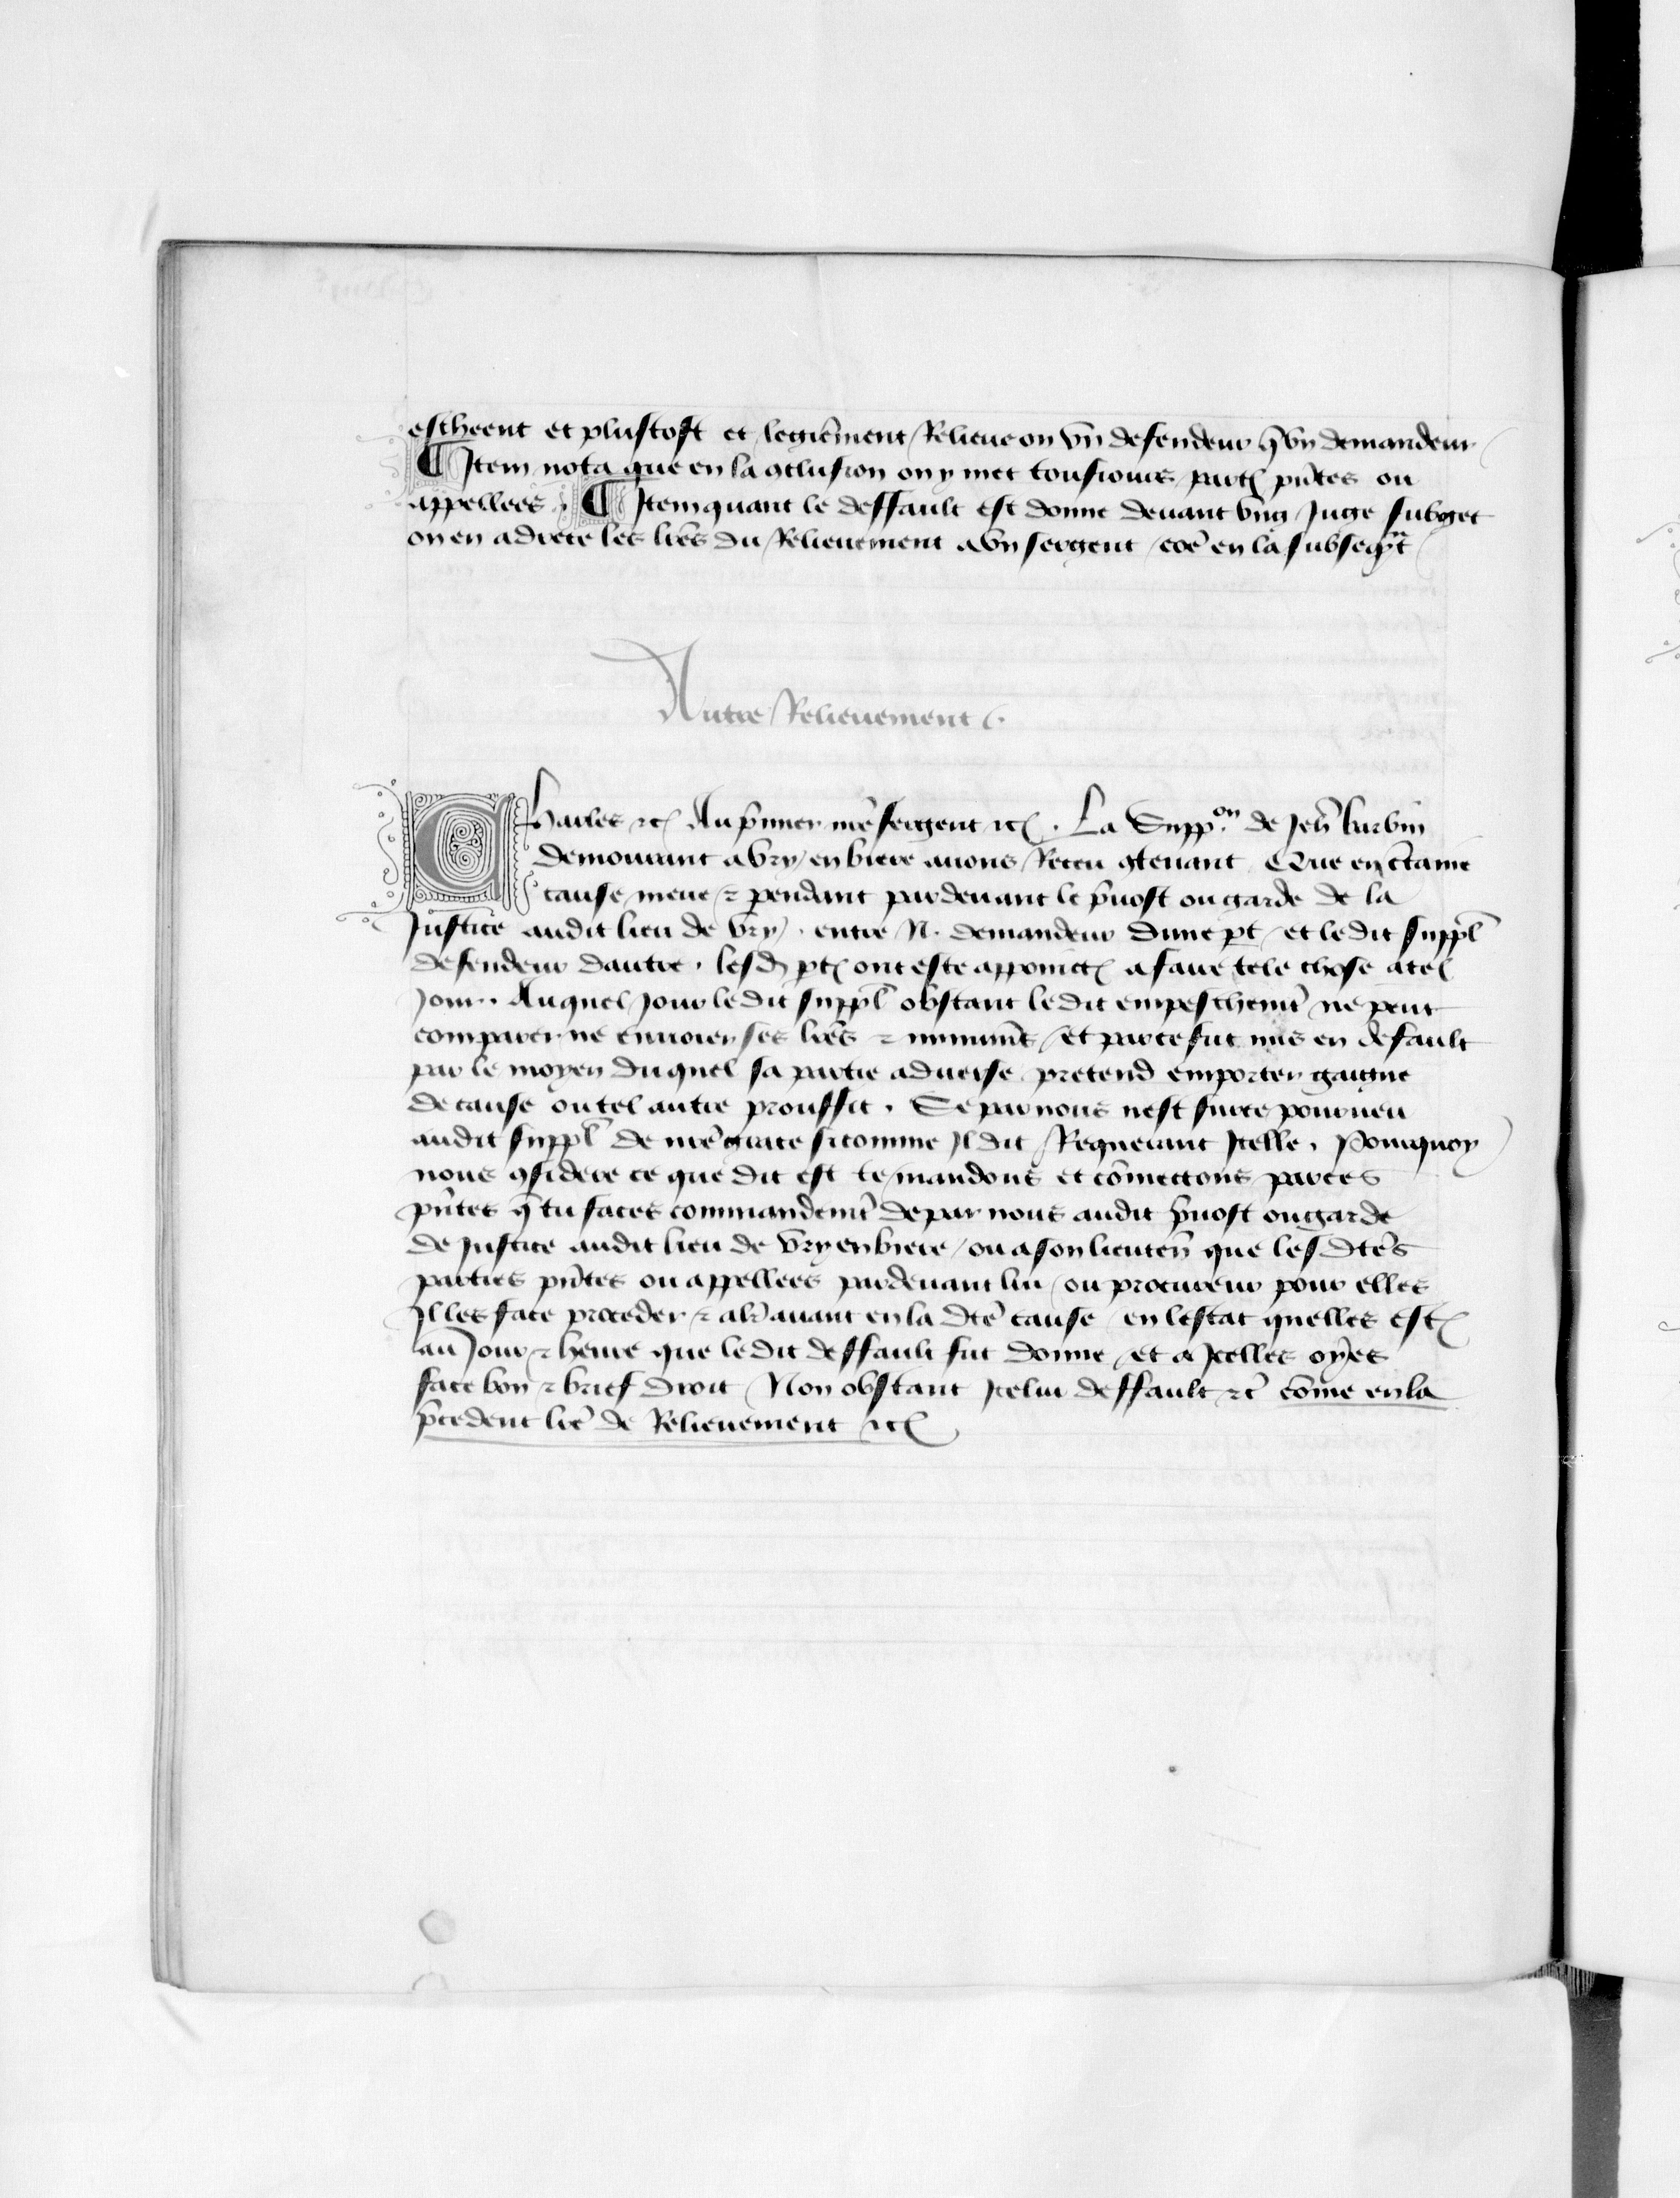 escheent et plustost et legierẽment Relieue on vñ defendeur q̃ vn demandeur
¶ Item nota que en la ꝯclusion on y met tousiours part̃ pñtes ou
appellees . ¶ Item quant le deffault est donne deuant vng Juge subget
on en adrece les lr̃es du Relieuement a vn sergent cõe en la subseqñt
Autre Relieuement .
Charles etc̃ Au p̃mier nr̃e sergent etc̃ . La Supp.on de Jeh̃
demourant a Vry en biere auons Receu ꝯtenant Que en c̃taine
cause meue et pendant pardeuant le p̃uost ou garde de la
Justice audit lieu de Vry . entre N. demandeur dune pt et ledit suppl̃
defendeur dautre . lesd pt̃ ont este appoinct̃ a faire tele chose a tel
Jour . Auquel Jour ledit suppl̃ obstant ledit empeschemt̃ ne peut
comparer ne enuoier ses lr̃es et munimẽs et par ce fut mis en default
par le moyen duquel sa partie aduerse pretend emporter gaigne
de cause ou tel autre prouffit . Se par nous nest sur ce pourueu
audit suppl̃ de nr̃e grace si comme Il dit Requerant Icelle . Pourquoy
nous ꝯsidere ce que dit est te mandons et cõmettons par ces
pñtes q̃ tu faces commandemt̃ de par nous audit p̃uost ou garde
de Justice audit lieu de Vry en biere ou a son lieuteñ que les dt̃es
parties pñtes ou appellees pardeuant lui ou procureur pour elles
Il les face proceder et aler auant en la dt̃e cause en lestat quelles est̃
au Jour et heure que ledit deffault fut donne et a Icelles oÿes
face bon et brief droit Non obstant Icelui deffault etc̃ cõme en la
p̃cedent lr̃e de Relieuement etc̃